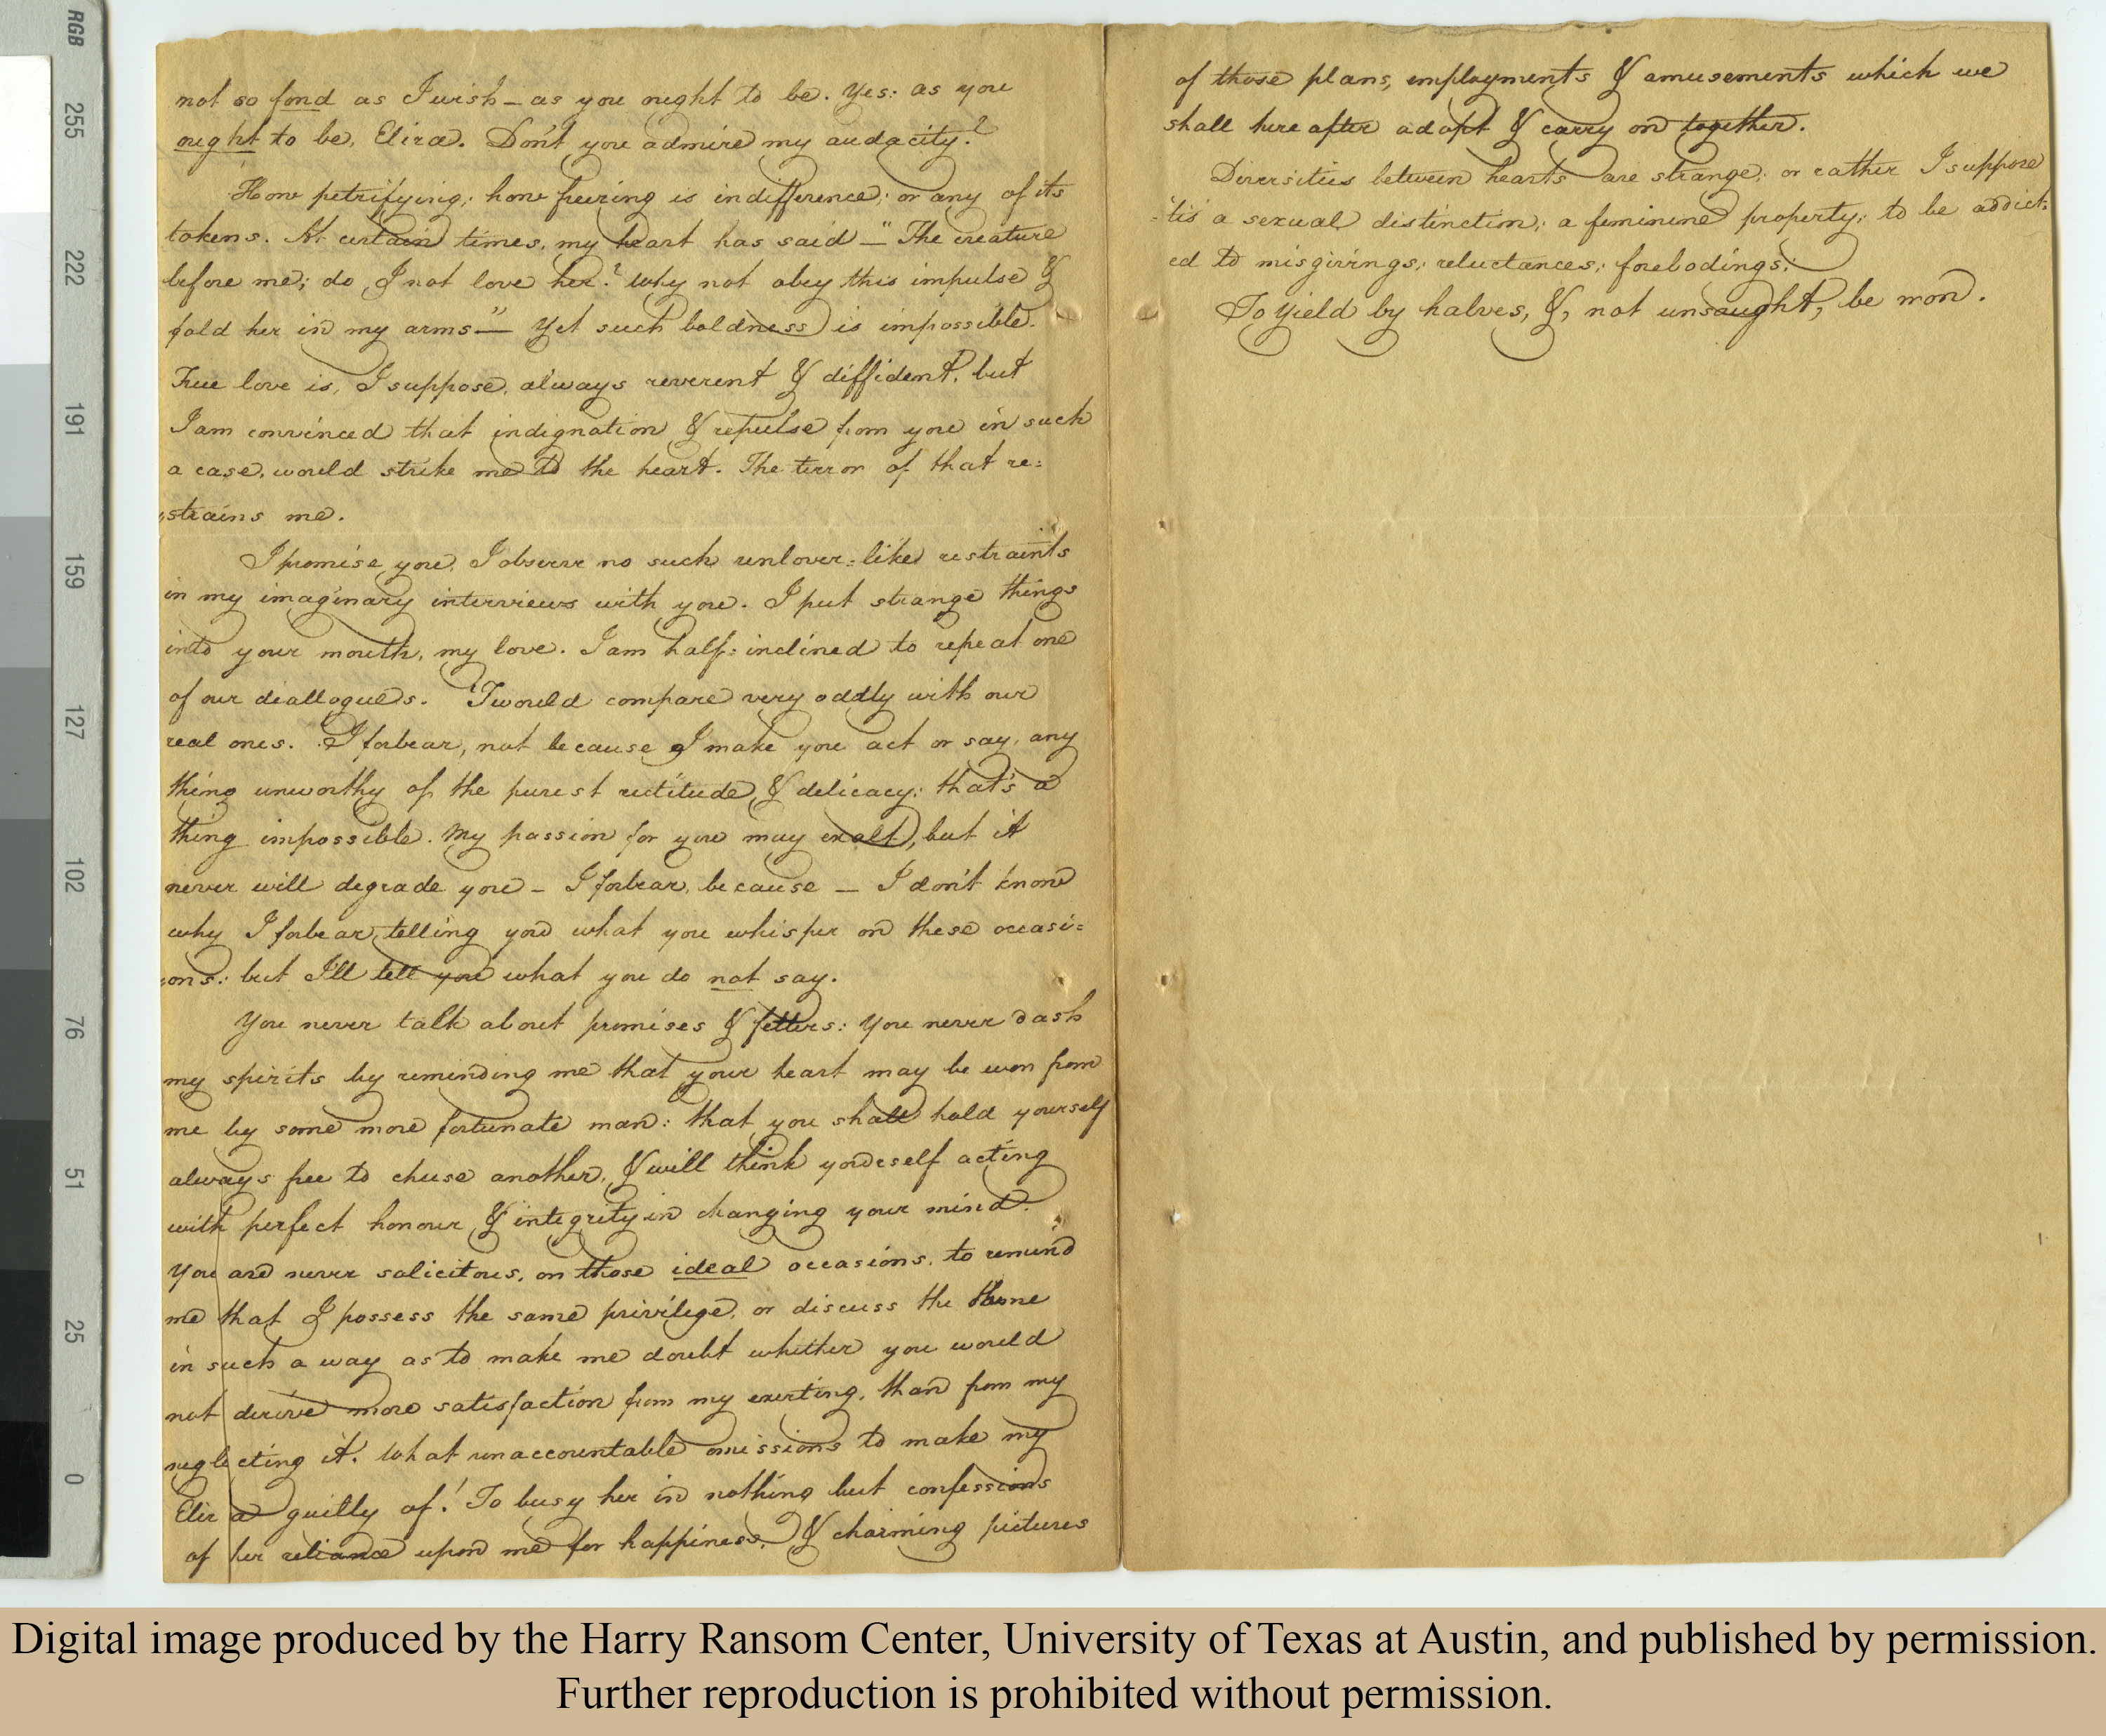 RGB
255
222
191
159
127
102
76
51
25
0
not so fond as I wish – as you ought to be. Yes: as you
ought to be, Eliza. Don't you admire my audacity?
How petrifying; how freezing is indifference; or any of its
tokens. At certain times, my heart has said – "The creature
before me; do I not love her? Why not obey this impulse &
fold her in my arms –" Yet such boldness is impossible.
True love is, I suppose, always reverent & diffident, but
I am convinced that indignation & repulse from you in such
a case, would strike me to the heart. The terror of that re=
strains me.
I promise you, I observe no such unlover=like restraints
in my imaginary interviews with you. I put strange things
into your mouth, my love. I am half=inclined to repeat one
of our diallogues. 'Twould compare very oddly with our
real ones. I forbear, not because I make you act or say, any
thing unworthy of the purest rectitude & delicacy: that's a
thing impossible. My passion for you may exalt, but it
never will degrade you – I forbear, because – I don't know
why I forbear telling you what you whisper on these occasi=
ons: but I'll tell you what you do not say.
You never talk about promises & fetters: You never dash
my spirits by reminding me that your heart may be won from
me by some more fortunate man: that you shall hold yourself
always free to chuse another, & will think yourself acting
with perfect honour & integrity in changing your mind.
You are never solicitous, on those ideal occasions, to remind
me that I possess the same privilege, or discuss the theme
in such a way as to make me doubt whether you would
not derive more satisfaction from my exerting, than from my
neglecting it. What unaccountable omissions to make my
Eliza guilty of! To busy her in nothing but confessions
of her reliance upon me for happiness, & charming pictures
of those plans, employments & amusements which we
shall here after adopt & carry on together.
Diversities between hearts are strange; or rather I suppose
'tis a sexual distinction; a feminine property; to be addict=
ed to misgivings; reluctances; forebodings;
To yield by halves, &, not unsought, be won.
Digital image produced by the Harry Ransom Center, University of Texas at Austin, and published by permission.
Further reproduction is prohibited without permission.